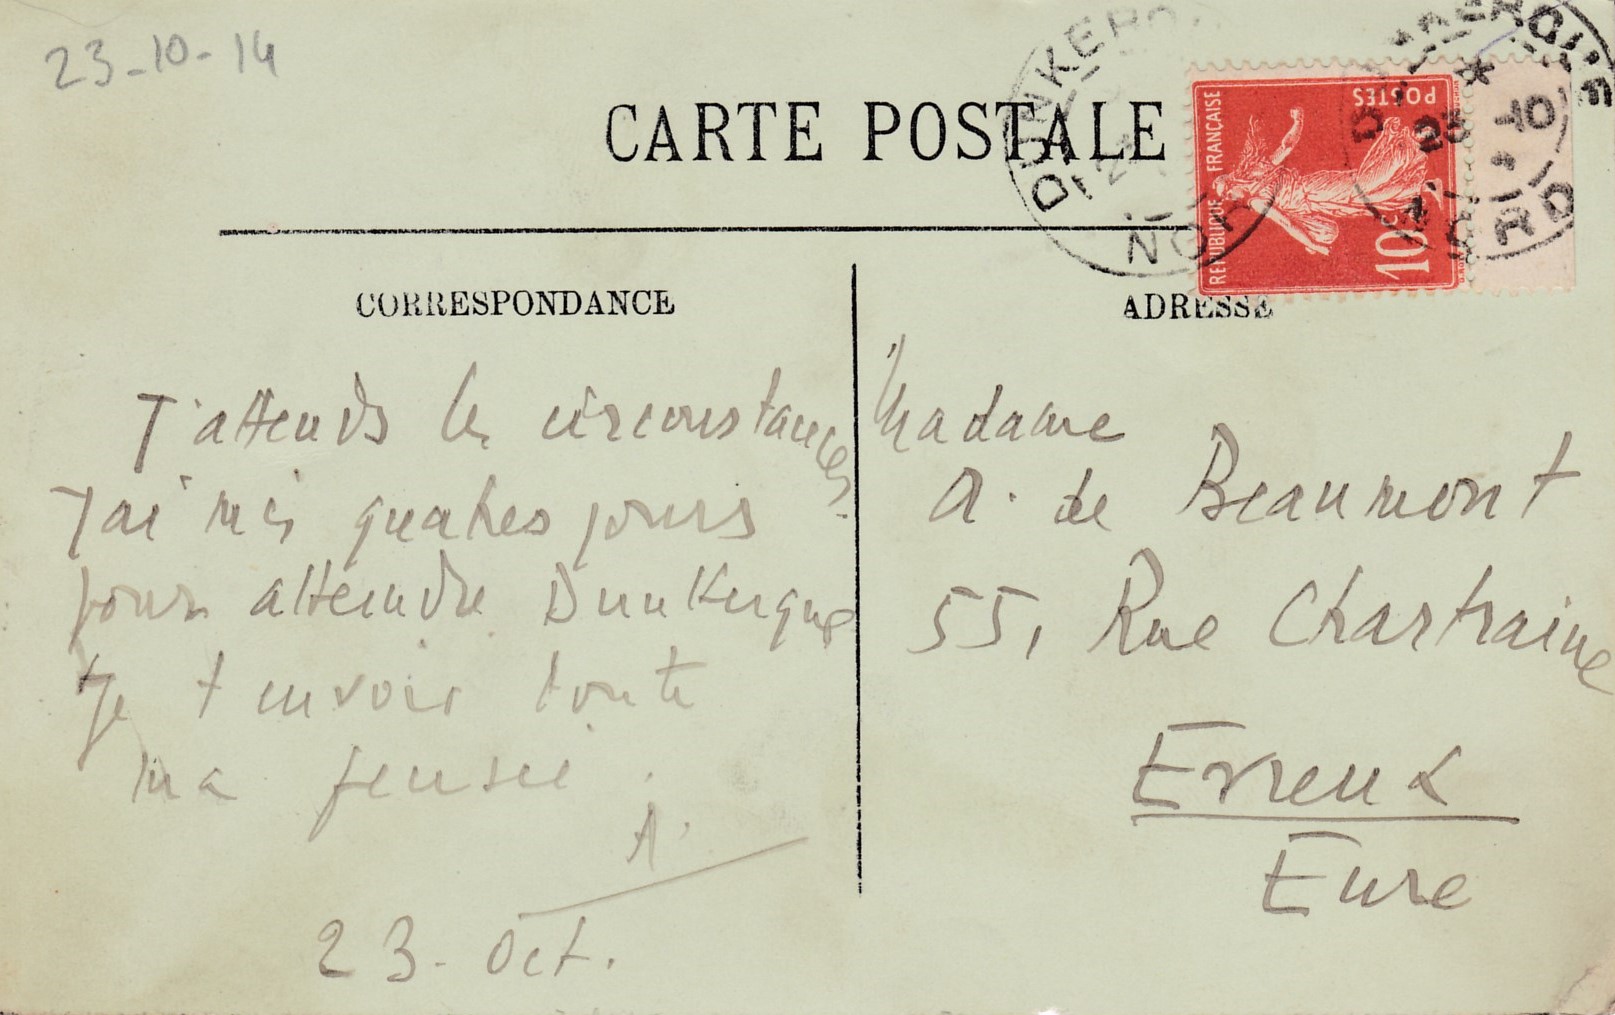 23-10-14
CARTE POSTALE
DUNKERQUE
NORD
REPUBLIQUE FRANÇAISE
POSTES
10c
DUNKERQUE
23 -10
NORD
CORRESPONDANCE
ADRESSE
J'attends les circonstances.
J'ai mis quatres jours
pour atteindre Dunkerque
Je t'envoie toute
ma pensée.
A.
23. Oct.
Madame
A. de Beaumont
55, Rue Chartraine
Evreux
Eure